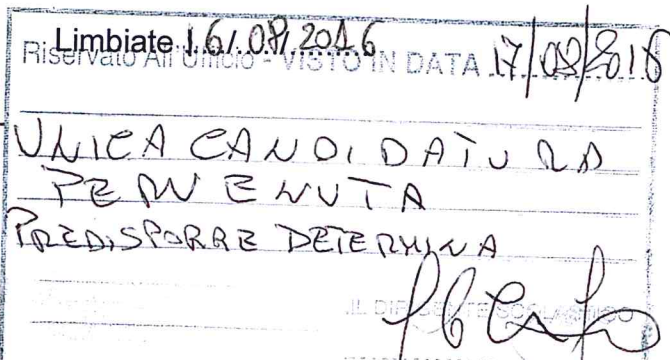 Limbiate 16/08/2016
Riservato All'Ufficio - VISTO IN DATA 17/08/2016
UNICA CANDIDATURA
PERVENUTA
PREDISPORRE DETERMINA
IL DIRIGENTE SCOLASTICO